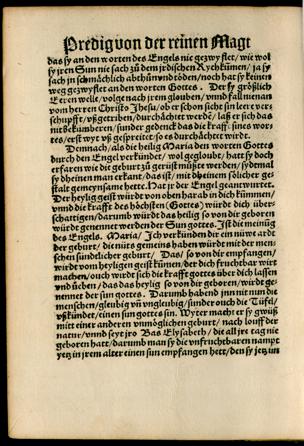 Predig von der reinen Magt
das sy an den worten des Engels nie gezwyflet / wie wol
sy jren Sun nie sach zů dem jrdischen Rychkům̃en / ja sy
sach jn schmächlich abthůn vnd töden / noch hat sy keinen
weg gezwyflet an den worten Gottes. Der sy größlich
Eeren welle / volge nach jrem glouben / vnnd fall nienan
vom herren Christo Jhesu / ob er schon sicht sin leere ver-
schupfft / vßgetriben / durchächtet werde / laß er sich das
nit bekümberen / sunder gedenck das die krafft sines wor-
tes / erst wyt vß gespreitet so es durchächtet wirdt.
Demnach / als die heilig Maria den worten Gottes
durch den Engel verkündet / wol gegloubt / hatt sy doch
erfaren wie die geburt zů gerüst müßte werden / sydemal
sy dheinen man erkant / das ist / mit dheinem sölicher ge-
stalt gemeynsame hette. Hat jr der Engel geantwurtet.
Der heylig geist würdt von oben harab in dich kümmen /
vnnd die krafft des höchsten (Gottes) würdt dich über-
schattigen / darumb würdt das heilig so von dir geboren
würdt genennet werden der Sun gottes. Ist die meinũg
des Engels. Maria / Jch verkünden dir ein nüwe ardt
der geburt / die nüts gemeins haben würdt mit der men-
schen sündtlicher geburt / Das so von dir empfangen /
wirdt vom heyligen geist küm̃en / der dich fruchtbar wirt
machen / ouch wirdt sich die krafft gottes über dich lassen
vnd üeben / das das heylig so von dir geboren / wirdt ge-
nennet der sun gottes. Darumb habend jnn nit nun die
menschen / gleubig vñ vngleubig / sunder ouch die Tüfel /
vßkündet / einen sun gottes sin. Wyter macht er sy gwüß
mitt einer anderen vnmöglichen geburt / nach louff der
natur / vnnd seyt jro Das Elysabeth / die all jre tag nie
geboren hatt / darumb man sy die vnfruchtbaren nampt
yetz in jrem alter einen sun empfangen hett / den sy jetz im